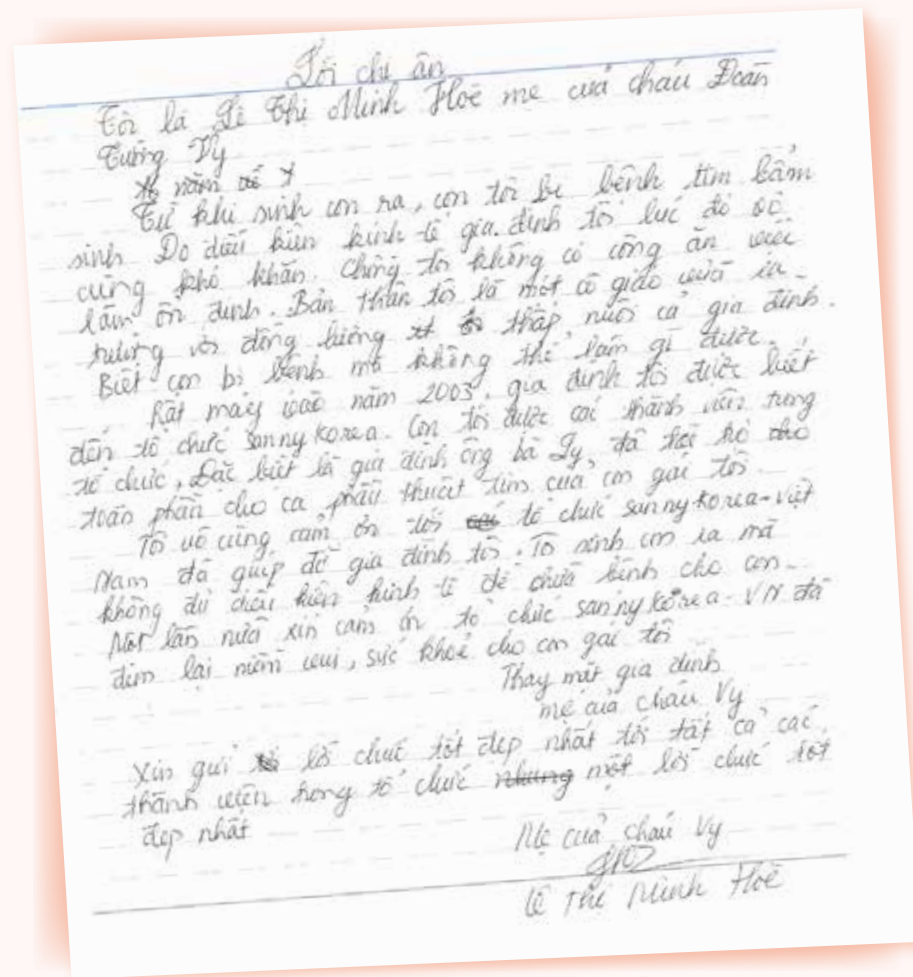 Lời chi ân
Tôi là Lê Thị Minh Hoè mẹ của cháu Đoàn
Tường Vy
Từ khi sinh con ra, con tôi bị bệnh tim bẩm
sinh Do điều kiện kinh tế gia đình tôi lúc đó vô
cùng khó khăn. Chồng tôi không có công ăn việc
làm ổn định. Bản thân tôi là một cô giáo vừa ra
trường với đồng lương thấp, nuôi cả gia đình.
Biết con bị bệnh mà không thể làm gì được.
Rất may vào năm 2003, gia đình tôi được biết
đến tổ chức sannykorea. Con tôi được các thành viên trong
tổ chức, Đặc biệt là gia đình ông bà Ly đã tài trợ
toàn phần cho ca phẫu thuật tim của con gái tôi.
Tôi vô cùng cảm ơn tới tổ chức sannykorea-việt
Nam đã giúp đỡ gia đình tôi. Tôi sinh con ra mà
không đủ điều kiện kinh tế để chữa bệnh cho con.
Một lần nữa xin cảm ơn tổ chức sannykorea-VN đã
đem lại niềm vui, sức khoẻ cho con gái tôi
Thay mặt gia đình
mẹ của cháu Vy
Xin gửi lời chúc tốt đẹp nhất tới tất cả các
thành viên trong tổ chức một lời chúc tốt
đẹp nhất
Mẹ của cháu Vy
Lê Thị Minh Hoè